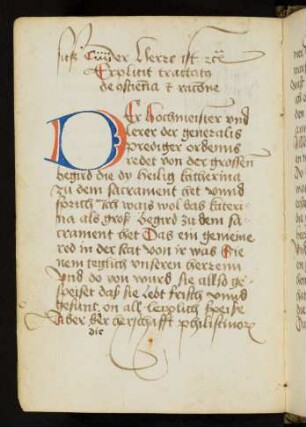 der Herre ist
Explicit tractatus
de
Der hochmeister vnd
lerer der generalis
prediger ordenns
redet von der grossen
begird die dv heilig katherina
zu dem sacrament het vnnd
sprich ich ways wol das kateri
na als groß begird zu dem sa
crament het Das ein gemeine
red in der stat von ir was Sie
nem teglich vnseren herrenn
vnd do von wurd sie allso ge
speiset daß sie lebt frisch vnnd
gesunt on all leyplich speise
Vber der herschafft philistinorum
die